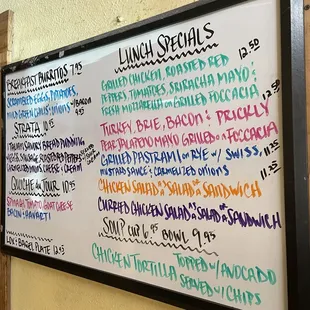 BREAKFAST BURRITOS 7.95
SCRAMBLED EGGS, POTATOES,
MILD GREEN CHILIS, ONIONS w/BACON
STRATA 10.95
TOMATO SAVORY BREAD PUDDING
EGGS, SAUSAGE, ROASTED PEPPERS
CARAMELIZED ONIONS, CHEESE + CREAM
QUICHE du JOUR 10.95
SPINACH, TOMATO, GOAT CHEESE
BACON + HAVARTI
LOX + BAGEL PLATE 12.95
LUNCH SPECIALS
GRILLED CHICKEN, ROASTED RED 12.50
PEPPERS, TOMATOES, SRIRACHA MAYO +
FRESH MOZZARELLA ON GRILLED FOCCACIA
TURKEY, BRIE, BACON + PRICKLY 12.50
PEAR JALAPEÑO MAYO GRILLED ON FOCCACIA
GRILLED PASTRAMI ON RYE w/ SWISS,
MUSTARD SAUCE + CARMELIZED ONIONS 11.95
CHICKEN SALAD SALAD OR SANDWICH 11.35
CURRIED CHICKEN SALAD SALAD OR SANDWICH
SOUP CUP 6.95 BOWL 9.95
CHICKEN TORTILLA TOPPED w/ AVOCADO
SERVED w/ CHIPS